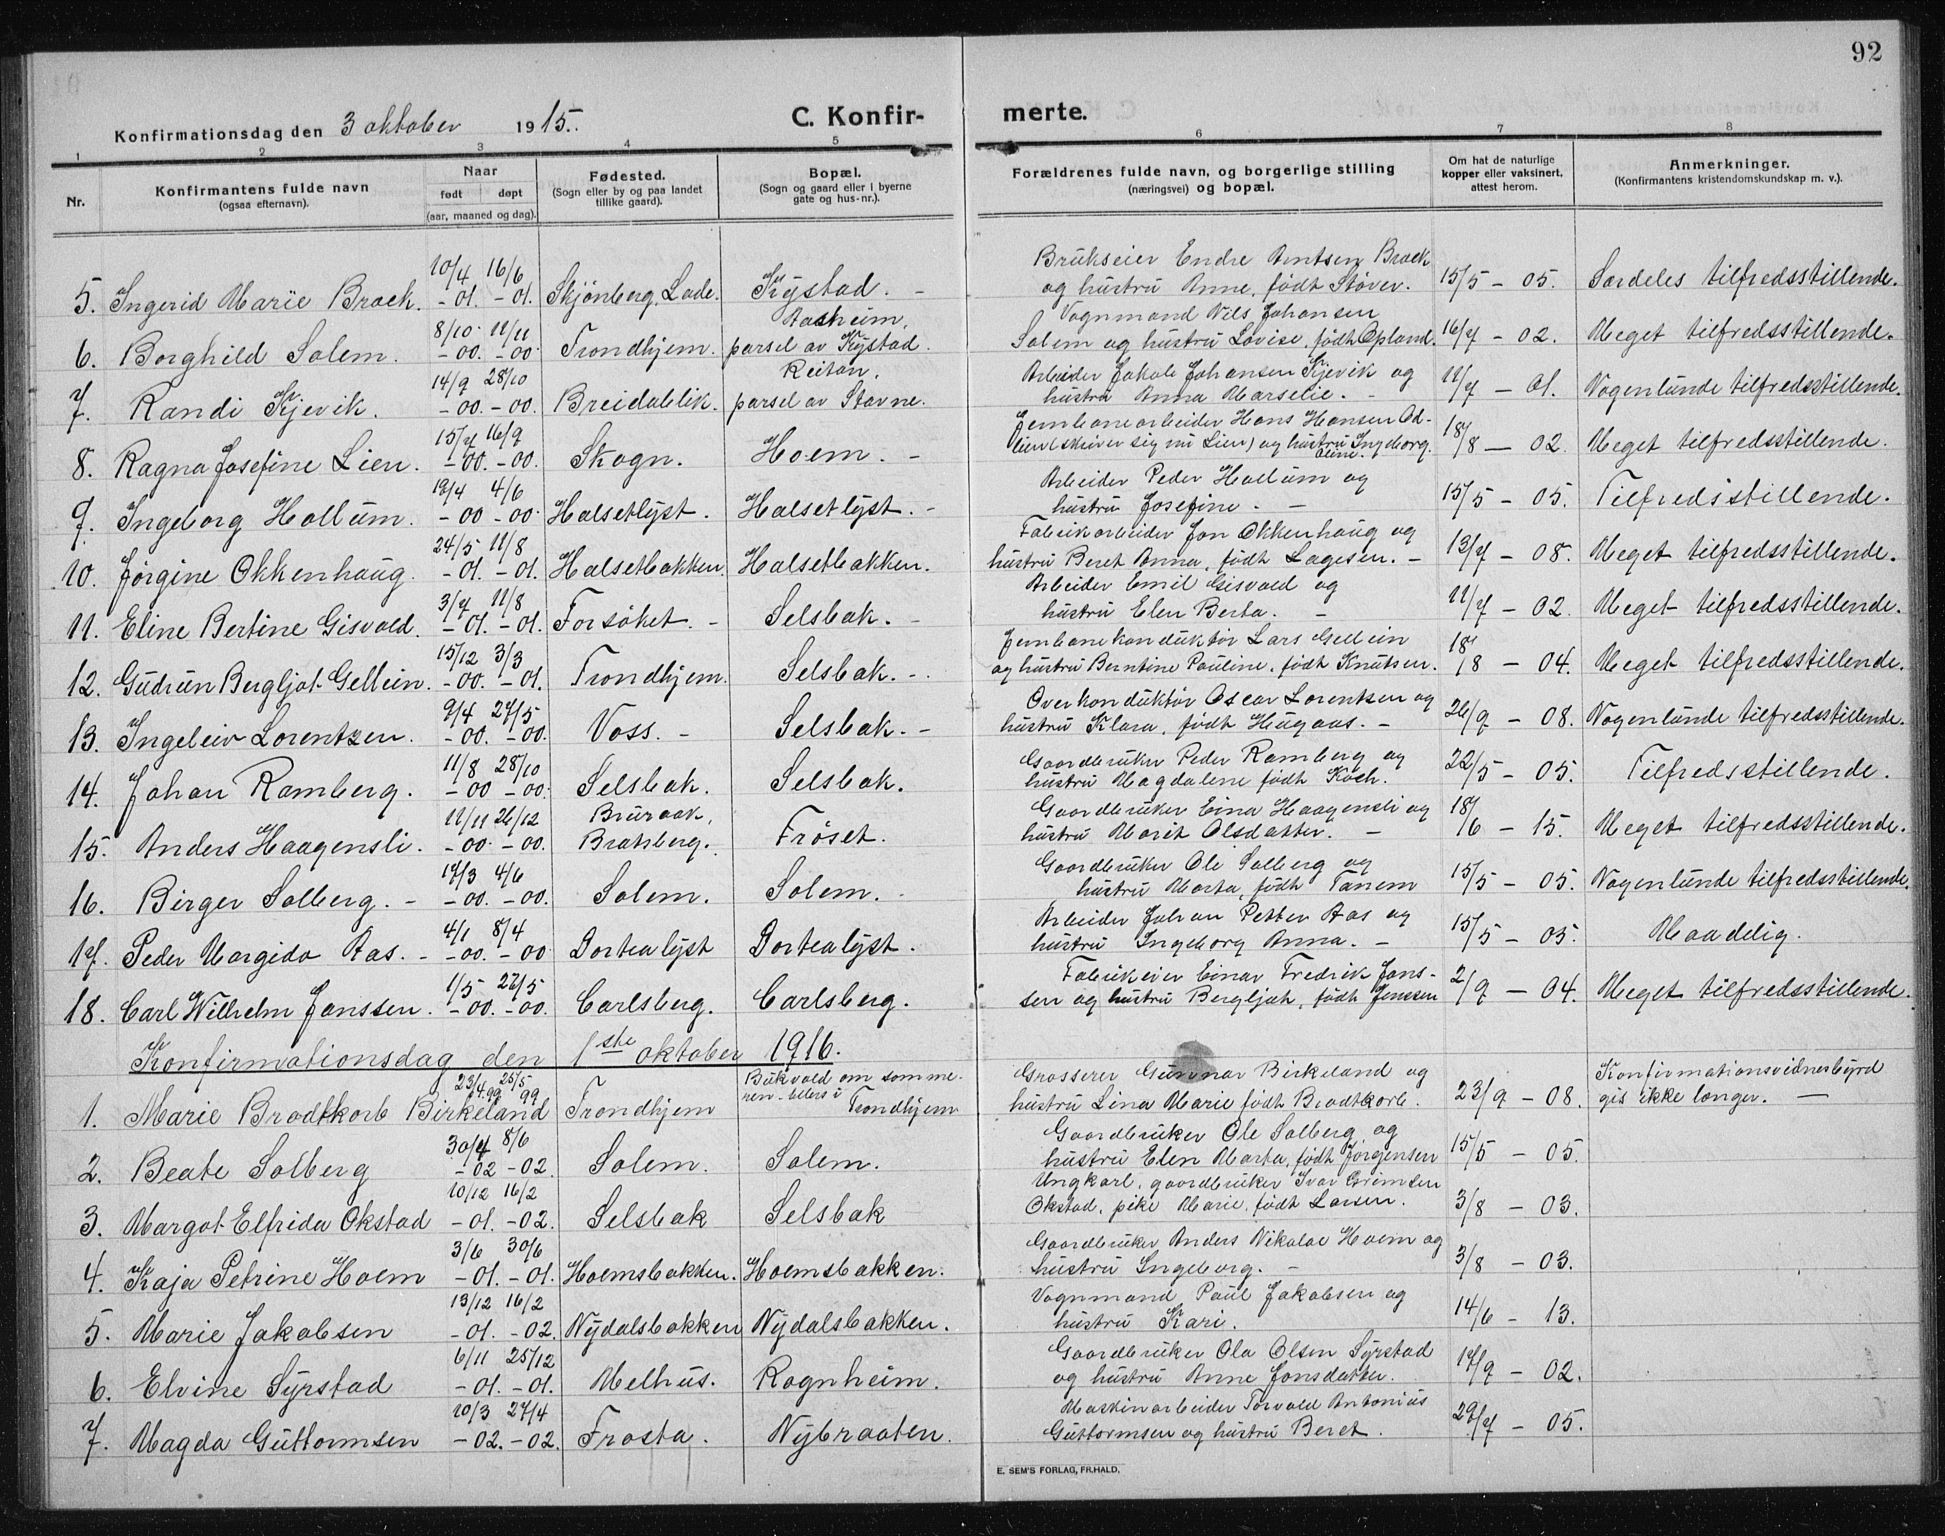 92
Konfirmationsdag den 3 oktober 1915.
C. Konfir-
merte.
1 2 3 4 5 6 7 8
Nr.
Konfirmantens fulde navn
(ogsaa efternavn).
Naar
født døpt
(aar, maaned og dag).
Fødested.
(Sogn eller by og paa landet
tillike gaard).
Bopæl.
(Sogn og gaard eller i byerne
gate og hus-nr.).
Forældrenes fulde navn, og borgerlige stilling
(næringsvei) og bopæl.
Om hat de naturlige
kopper eller vaksinert,
attest herom.
Anmerkninger.
(Konfirmantens kristendomskundskap m. v.).
10/4 16/6 Brukseier Endre Arntsen Braek
5. Ingerid Marie Braek. -01. -01. Skjønberg, Lade. Kystad. - og hustru Anne, født Støver. 15/5 - 05. Særdeles tilfredsstillende.
8/10 11/11 Aasheim, Vognmand Nils Johansen
6. Borghild Solem. -00. -00. Trondhjem. parsel av Kystad. Solem og hustru Lovise, født Opland. 16/7 - 02. Meget tilfredsstillende.
14/9 28/10 Reitan, Arbeider Jakob Johansen Kjevik og
7. Randi Kjevik. -00. -00. Breidablik. parsel av Stavne. hustru Anna Marselie. - 11/7 - 01. Nogenlunde tilfredsstillende.
15/7 16/9 Jernbanearbeider Hans Hansen Od-
8. Ragna Josefine Lien. -00. -00. Skogn. Hoem. - lien (skriver sig nu Lien) og hustru Ingeborg Eline. 18/8 - 02. Meget tilfredsstillende.
19/4 4/6 Arbeider Peder Hollum og
9. Ingeborg Hollum. -00 -00. Halsetlyst. Halsetlyst. - hustru Josefine. - 15/5 - 05. Tilfredsstillende.
24/5 11/8 Fabrikarbeider Jon Okkenhaug og
10. Jørgine Okkenhaug. -01. -01. Halsetbakken. Halsetbakken. hustru Beret Anna, født Lagesen. - 13/7 - 08. Meget tilfredsstillende.
3/7 11/8 Arbeider Emil Gisvold og
11. Eline Bertine Gisvold. -01. -01. Forsøket. - Selsbak. - hustru Elen Berta. - 11/7 - 02. Meget tilfredsstillende.
15/12 3/3 Jernbanekonduktør Lars Gellein
12. Gudrun Bergljot Gellein. -00. -01. Trondhjem. Selsbak. - og hustru Berntine Pauline, født Knutsen. 18/8 - 04. Meget tilfredsstillende.
9/4 27/5 Overkonduktør Oscar Lorentzen og
13. Ingeleiv Lorentzen. -00. -00. Voss. - Selsbak. - hustru Klara, født Hugaas. - 26/9 - 08. Nogenlunde tilfredsstillende.
11/8 28/10 Gaardbruker Peder Ramberg og
14. Johan Ramberg. -00 -00. Selsbak. Selsbak. hustru Magdalene født Koch. 22/5 - 05. Tilfredsstillende.
11/11 26/12 Bruraak, Gaardbruker Einar Haagensli og
15. Anders Haagensli. -00. -00. Bratsberg. Frøset. hustru Marit Olsdatter. - 18/6 - 15. Meget tilfredsstillende.
17/3 4/6 Gaardbruker Ole Solberg og
16. Birger Solberg. - -00. -00. Solem. Solem. - hustru Marta, født Tanem 15/5 - 05. Nogenlunde tilfredsstillende.
4/1 8/4 Arbeider Johan Petter Aas og
17. Peder Margido Aas. -00. -00 Dortealyst Dortealyst. hustru Ingeborg Anna. - 15/5 - 05. Maadelig.
1/5 27/5 Fabrikeier Einar Fredrik Jans-
18. Carl Wilhelm Janssen. -00. -00. Carlsberg. Carlsberg. sen og hustru Bergljot, født Jenssen 2/9 - 04. Meget tilfredsstillende.
Konfirmationsdag den 1ste oktober 1916.
23/4 99 25/5 99 Bukvold om somme- Grosserer Gunnar Birkeland og Konfirmationsvidnesbyrd
1. Marie Brodtkorb Birkeland Trondhjem ren. ellers i Trondhjem hustru Lina Marie født Brodtkorb. 23/9 - 08. gis ikke længer. -
30/4 8/6 Gaardbruker Ole Solberg og
2. Beate Solberg -02 -02. Solem. Solem. hustru Elen Marta, født Jørgensen 15/5 - 05.
10/12 16/2 Ungkarl, gaardbruker Ivar Grimsen
3. Margot Elfrida Okstad -01. -02. Selsbak Selsbak Okstad, pike Marie, født Larsen. 3/8 - 03.
3/6 30/6 Gaardbruker Anders Nikolai Hoem og
4. Kaja Petrine Hoem -01. -01. Hoemsbakken. Hoemsbakken. hustru Ingeborg. - 3/8 - 03.
13/12 16/2 Vognmand Paul Jakobsen og
5. Marie Jakobsen -01. -02. Nydalsbakken Nydalsbakken. hustru Kari. 14/6 - 13.
6/11 25/12 Gaardbruker Ola Olsen Syrstad
6. Elvine Syrstad -01. -01. Melhus. Rognheim. og hustru Anne Jonsdatter. 17/9 - 02.
10/3 27/4 Maskinarbeider Torvald Antonius
7. Magda Guttormsen -02. -02. Frosta. Nybraaten. Guttormsen og hustru Beret. 29/7 - 05.
E. SEM'S FORLAG, FR.HALD.